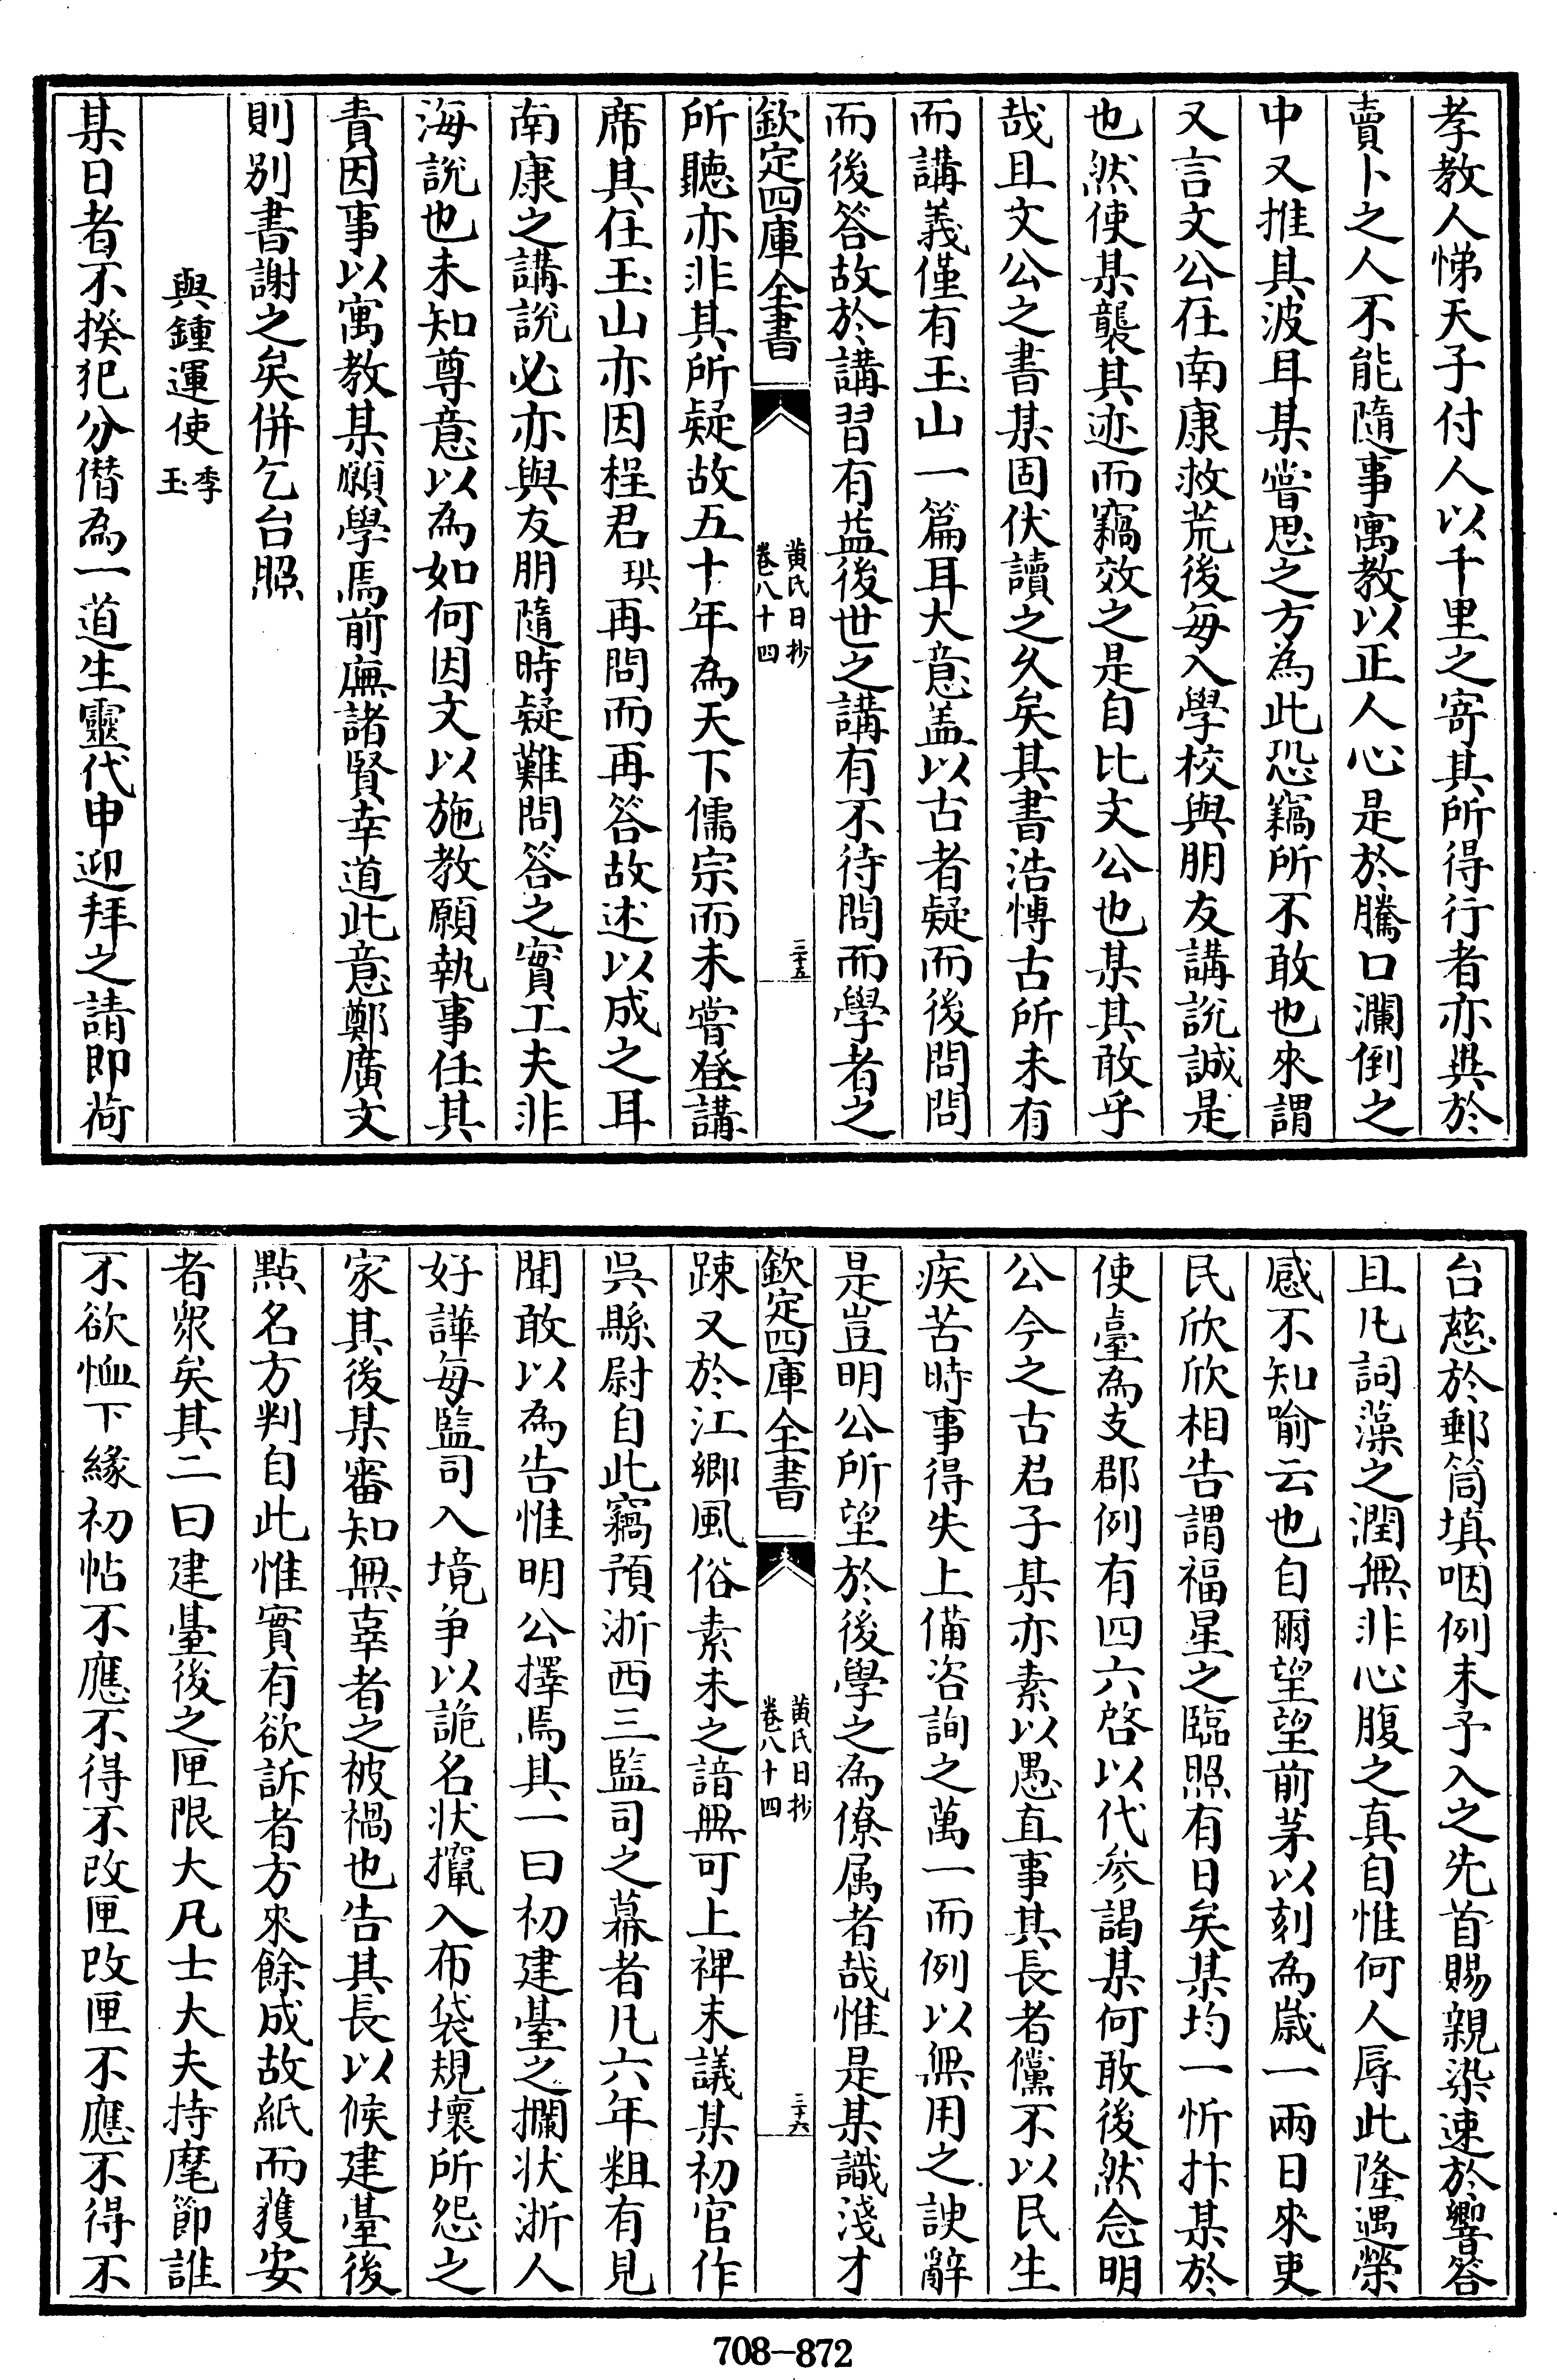 孝教人悌天子付人以千里之寄其所得行者亦與於
賣卜之人不能隨事寓教以正人心是於騰口瀾倒之
中又推其波耳某嘗思之方為此恐竊所不敢也來謂
又言文公在南康救荒後每入學校與朋友講說誠是
也然使某襲其迹而竊效之是自比文公也某其敢乎
哉且文公之書某固伏讀之久矣其書浩愽古所未有
而講義僅有玉山一篇耳大意盖以古者疑而後問問
而後答故於講習有益後世之講有不待問而學者之
欽定四庫全書
黄氏日抄
卷八十四
三十五
所聽亦非其所疑故五十年為天下儒宗而未嘗登講
席其在玉山亦因程君珙再問而再答故述以成之耳
南康之講說必亦與友朋隨時疑難問答之實工夫非
海說也未知尊意以為如何因文以施教願執事任其
責因事以寓教某願學焉前廡諸賢幸道此意鄭廣文
則别書謝之矣併乞台照
與鍾運使季玉
某日者不揆犯分僭為一道生靈代申迎拜之請即荷
台慈於郵筒填咽例未予入之先首賜親染速於響答
且凡詞藻之潤無非心腹之真自惟何人辱此隆遇榮
感不知喻云也自爾望望前茅以刻為歲一兩日來吏
民欣欣相告謂福星之臨照有日矣某均一忻抃某於
使臺為支郡例有四六啓以代參謁某何敢後然念明
公今之古君子某亦素以愚直事其長者儻不以民生
疾苦時事得失上備咨詢之萬一而例以無用之諛辭
是豈明公所望於後學之為僚属者哉惟是某識淺才
欽定四庫全書
黄氏日抄
卷八十四
三十六
踈又於江鄉風俗素未之諳無可上禆末議某初官作
吳縣尉自此竊預浙西三監司之幕者凡六年粗有見
聞敢以為告惟明公擇焉其一曰初建臺之攔狀浙人
好譁每監司入境争以詭名狀攛入布袋規壞所怨之
家其後某審知無辜者之被禍也告其長以候建臺後
點名方判自此惟實有欲訴者方來餘成故紙而獲安
者衆矣其二曰建臺後之匣限大凡士大夫持麾節誰
不欲恤下緣初帖不應不得不改匣改匣不應不得不
708—872